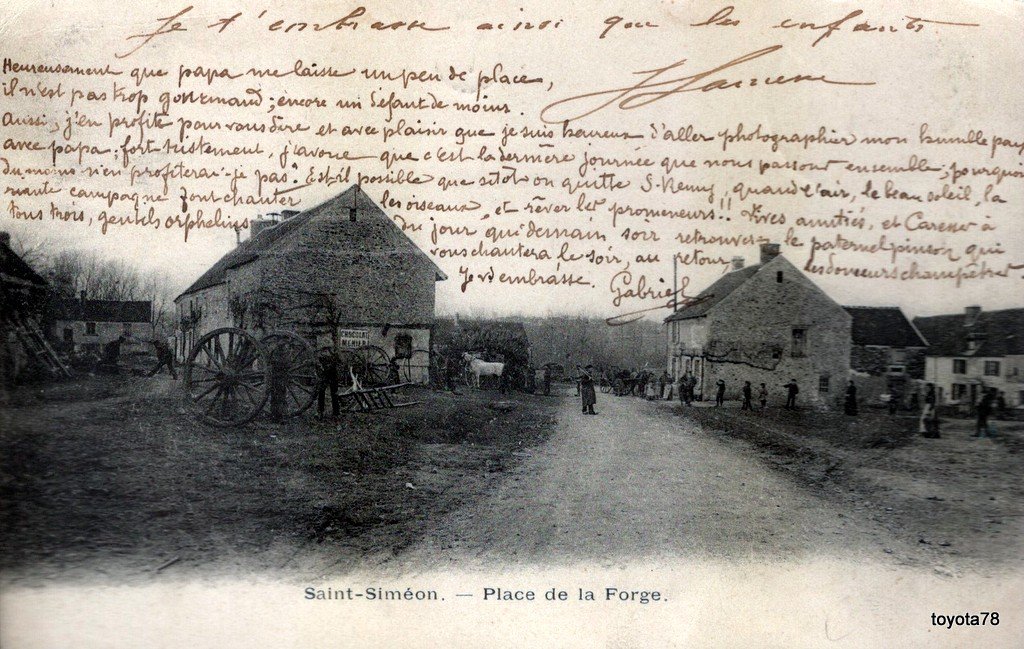 Je t'embrasse ainsi que les enfants
Heureusement que papa me laisse un peu de place,
il n'est pas trop gourmand ; encore un défaut de moins.
Aussi, j'en profite pour vous dire et avec plaisir que je suis heureux d'aller photographier mon humble pays
avec papa ; fort tristement, j'avoue que c'est la dernière journée que nous passons ensemble ; pourquoi
du moins n'en profiterai-je pas ? Est-il possible que sitôt on quitte S-Remy, quand l'air, le beau soleil, la
riante campagne font chanter les oiseaux, et rêver les promeneurs !! Vives amitiés, et Caresses à
tous trois, gentils orphelins du jour qui demain soir retrouverez le paternel pinson qui
vous chantera le soir, au retour, les douceurs champêtres
Je vs embrasse. Gabriel
CHOCOLAT
MENIER
Saint-Siméon. — Place de la Forge.
toyota78